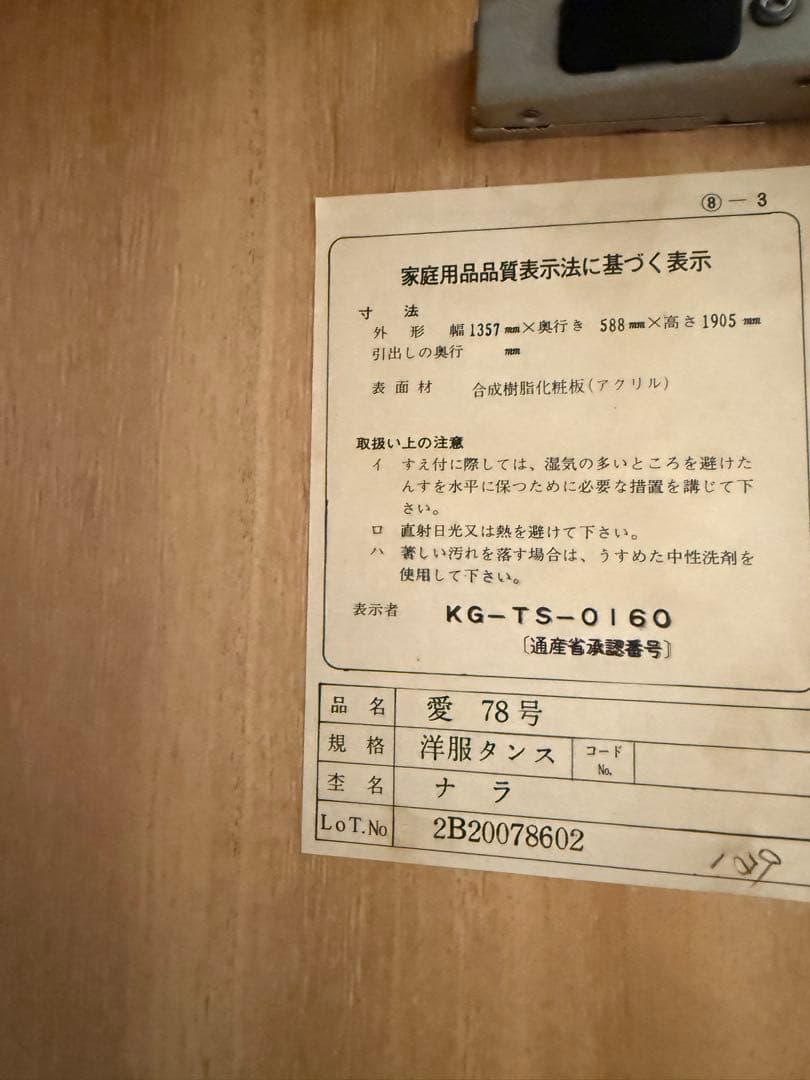 ⑧－3
家庭用品品質表示法に基づく表示
寸　法
外　形　幅1357㎜×奥行き　588㎜×高さ1905　㎜
引出しの奥行　　㎜
表面材　合成樹脂化粧板(アクリル)
取扱い上の注意
イ　すえ付に際しては、湿気の多いところを避けた
んすを水平に保つために必要な措置を講じて下
さい。
ロ　直射日光又は熱を避けて下さい。
ハ　著しい汚れを落す場合は、うすめた中性洗剤を
使用して下さい。
表示者　KG-TS-0160
〔通産省承認番号〕
品名　愛　78号
規格　洋服タンス　コードNo.
杢名　ナラ
LoT.No　2B20078602